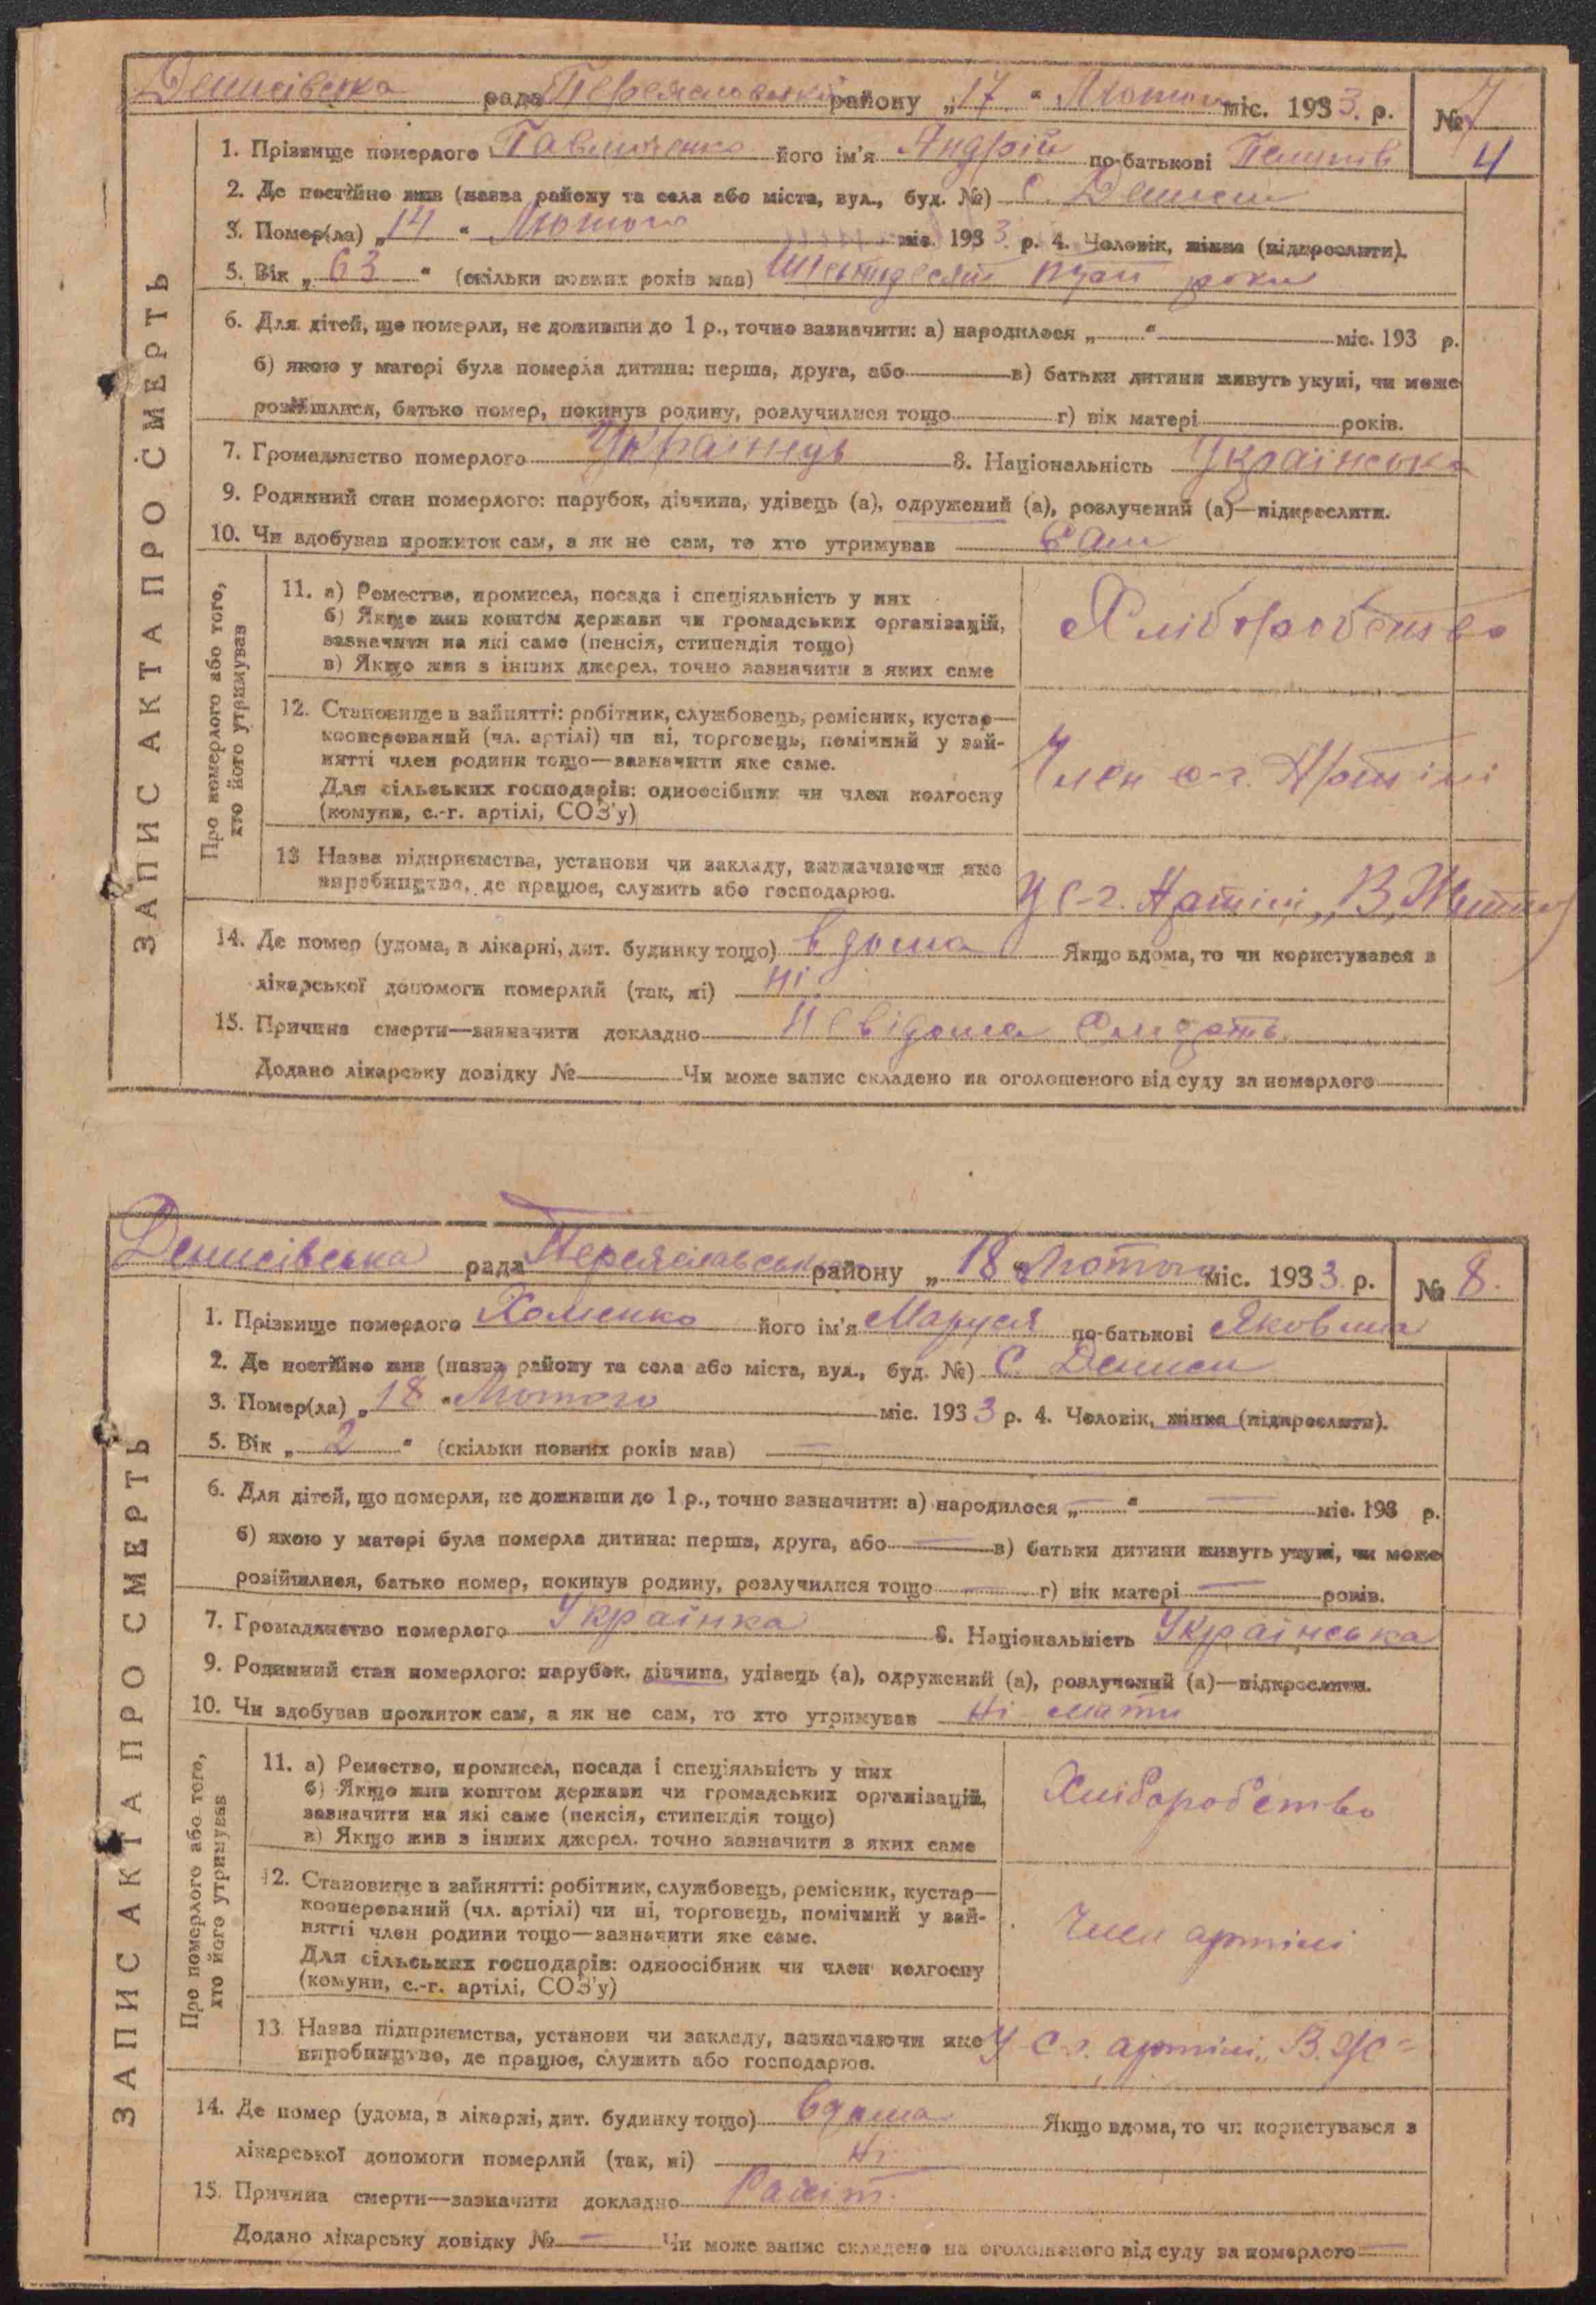 Денисівська рада Переяславської району „17“ Лютого міс. 1933 р. № 7
4
1. Прізвище померлого його ім'я Андрій по-батькові
2. Де постійно жив (назва району та села або міста, вул., буд. №) С. Дениси
3. Помер(ла) „14“ Лютого міс. 1933 р. 4. Чоловік, жінка (підкреслити).
5. Вік „63“ (скільки повних років мав) Шістьдесят три роки
6. Для дітей, що померли, не доживши до 1 р., точно зазначити: а) народилося „ “ міс. 193 р.
б) якою у матері була померла дитина: перша, друга, або в) батьки дитини живуть укупі, чи може
розійшлися, батько помер, покинув родину, розлучилися тощо г) вік матері років.
7. Громадянство померлого Українець 8. Національність Українська
9. Родинний стан померлого: парубок, дівчина, удівець (а), одружений (а), розлучений (а)—підкреслити.
10. Чи здобував прожиток сам, а як не сам, то хто утримував Сам
ЗАПИС АКТА ПРО СМЕРТЬ
Про померлого або того, хто його утримував
11. а) Ремество, промисел, посада і спеціяльність у них
б) Якщо жив коштом держави чи громадських організацій,
зазначити на які саме (пенсія, стипендія тощо)
в) Якщо жив з інших джерел, точно зазначити з яких саме
Хліборобство
12. Становище в зайнятті: робітник, службовець, ремісник, кустар—
кооперований (чл. артілі) чи ні, торговець, помічний у зай-
нятті член родини тощо—зазначити яке саме.
Для сільських господарів: одноосібник чи член колгоспу
(комуни, с.-г. артілі, СОЗ'у)
Член с-г. Артілі
13. Назва підприємства, установи чи закладу, зазначаючи яке
виробництво, де працює, служить або господарює.
У с-г. Артілі „В.
14. Де помер (удома, в лікарні, дит. будинку тощо) вдома Якщо вдома, то чи користувався з
лікарської допомоги померлий (так, ні) ні
15. Причина смерти—зазначити докладно Невідома
Додано лікарську довідку № Чи може запис складено на оголошеного від суду за померлого
Денисівська рада Переяславської району „18“ Лютого міс. 1933 р. № 8.
1. Прізвище померлого Хоменко його ім'я Маруся по-батькові Яковна
2. Де постійно жив (назва району та села або міста, вул., буд. №) С. Дениси
3. Помер(ла) „18“ Лютого міс. 1933 р. 4. Чоловік, жінка (підкреслити).
5. Вік „2“ (скільки повних років мав) —
6. Для дітей, що померли, не доживши до 1 р., точно зазначити: а) народилося „—“ — міс. 193 р.
б) якою у матері була померла дитина: перша, друга, або — в) батьки дитини живуть укупі, чи може
розійшлися, батько помер, покинув родину, розлучилися тощо — г) вік матері — років.
7. Громадянство померлого Українка 8. Національність Українська
9. Родинний стан померлого: парубок, дівчина, удівець (а), одружений (а), розлучений (а)—підкреслити.
10. Чи здобував прожиток сам, а як не сам, то хто утримував Ні мати
ЗАПИС АКТА ПРО СМЕРТЬ
Про померлого або того, хто його утримував
11. а) Ремество, промисел, посада і спеціяльність у них
б) Якщо жив коштом держави чи громадських організацій,
зазначити на які саме (пенсія, стипендія тощо)
в) Якщо жив з інших джерел, точно зазначити з яких саме
Хліборобство
12. Становище в зайнятті: робітник, службовець, ремісник, кустар—
кооперований (чл. артілі) чи ні, торговець, помічний у зай-
нятті член родини тощо—зазначити яке саме.
Для сільських господарів: одноосібник чи член колгоспу
(комуни, с.-г. артілі, СОЗ'у)
Член артілі
13. Назва підприємства, установи чи закладу, зазначаючи яке
виробництво, де працює, служить або господарює.
У С-г. артілі „В. Ж=
14. Де помер (удома, в лікарні, дит. будинку тощо) вдома Якщо вдома, то чи користувався з
лікарської допомоги померлий (так, ні) Ні
15. Причина смерти—зазначити докладно Рахіт.
Додано лікарську довідку № — Чи може запис складено на оголошеного від суду за померлого —